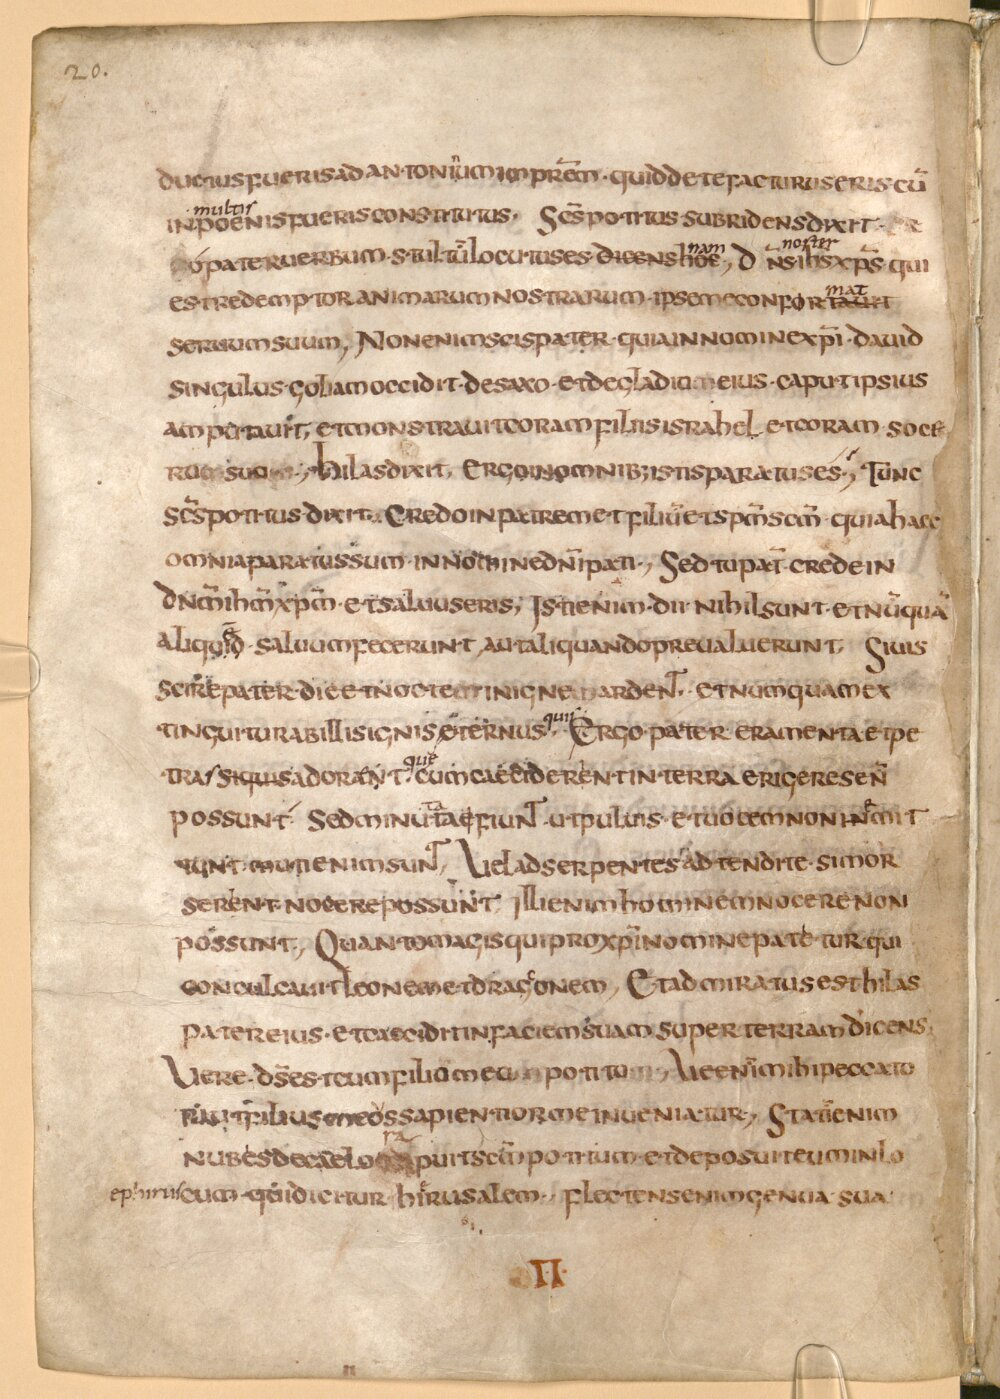 20.
ductus fueris ad antoniūm imprēm · quid de te facturus eris · cū
multis
in poenis fueris constitutus · Scs̄ potitus subridens dixit
nam noster
ó pater uerbum stultū locutus es dicens hoc, d ns̄ ihs xps̄ qui
mat
est redemptor animarum nostrarum · ipse me confortauit
seruum suum, Non enim scis pater · quia in nomine xpī · dauid
singulus goliam occidit · de saxo · et de gladium eius · caput ipsius
amputauit, et monstrauit coram filiis israhel et coram soce
hilas dixit, Ergo in omnib; istis paratus es, Tunc
scs̄ potitus dixit · Credo in patrem et filiū et spm̄ scm̄ quia haec
omnia paratus sum in nomine dnī pati, Sed tu pat̄ crede in
dnm̄ ihm̄ xpm̄ · et saluus eris, Isti enim dii nihil sunt · et nūquā
aliquid · saluum fecerunt, aut aliquando preualuerunt, Si uis
scire pater die et nocte igne ardent · et numquam ex
quii
tinguitur ab illis ignis eternus Ergo pater eramenta et pe
que
tras siquis adorant cum caeciderent in terra erigere se n̄
ta
possunt Sed minutae fiunt ut puluis · et uocem non mit
tunt muti enim sunt, Vel ad serpentes adtendite · si mor
serent nocere possunt illi enim hominem nocere non
possunt, Quanto magis qui pro xpī nomine patetur qui
conculcauit leonem et dragconem, Et admiratus est hilas
pater eius · et caecidit in faciem suam super terram dicens
Vere · ds̄ es tecum fili potitu Ve enim mihi peccato
filius meos sapientior me inueniatur, Statī enim
ra
nubes de caelo puit scm̄ potitum · et deposuit eum in lo
ephirus cum qui dicitur hirusalem · flectens enim genua sua
II